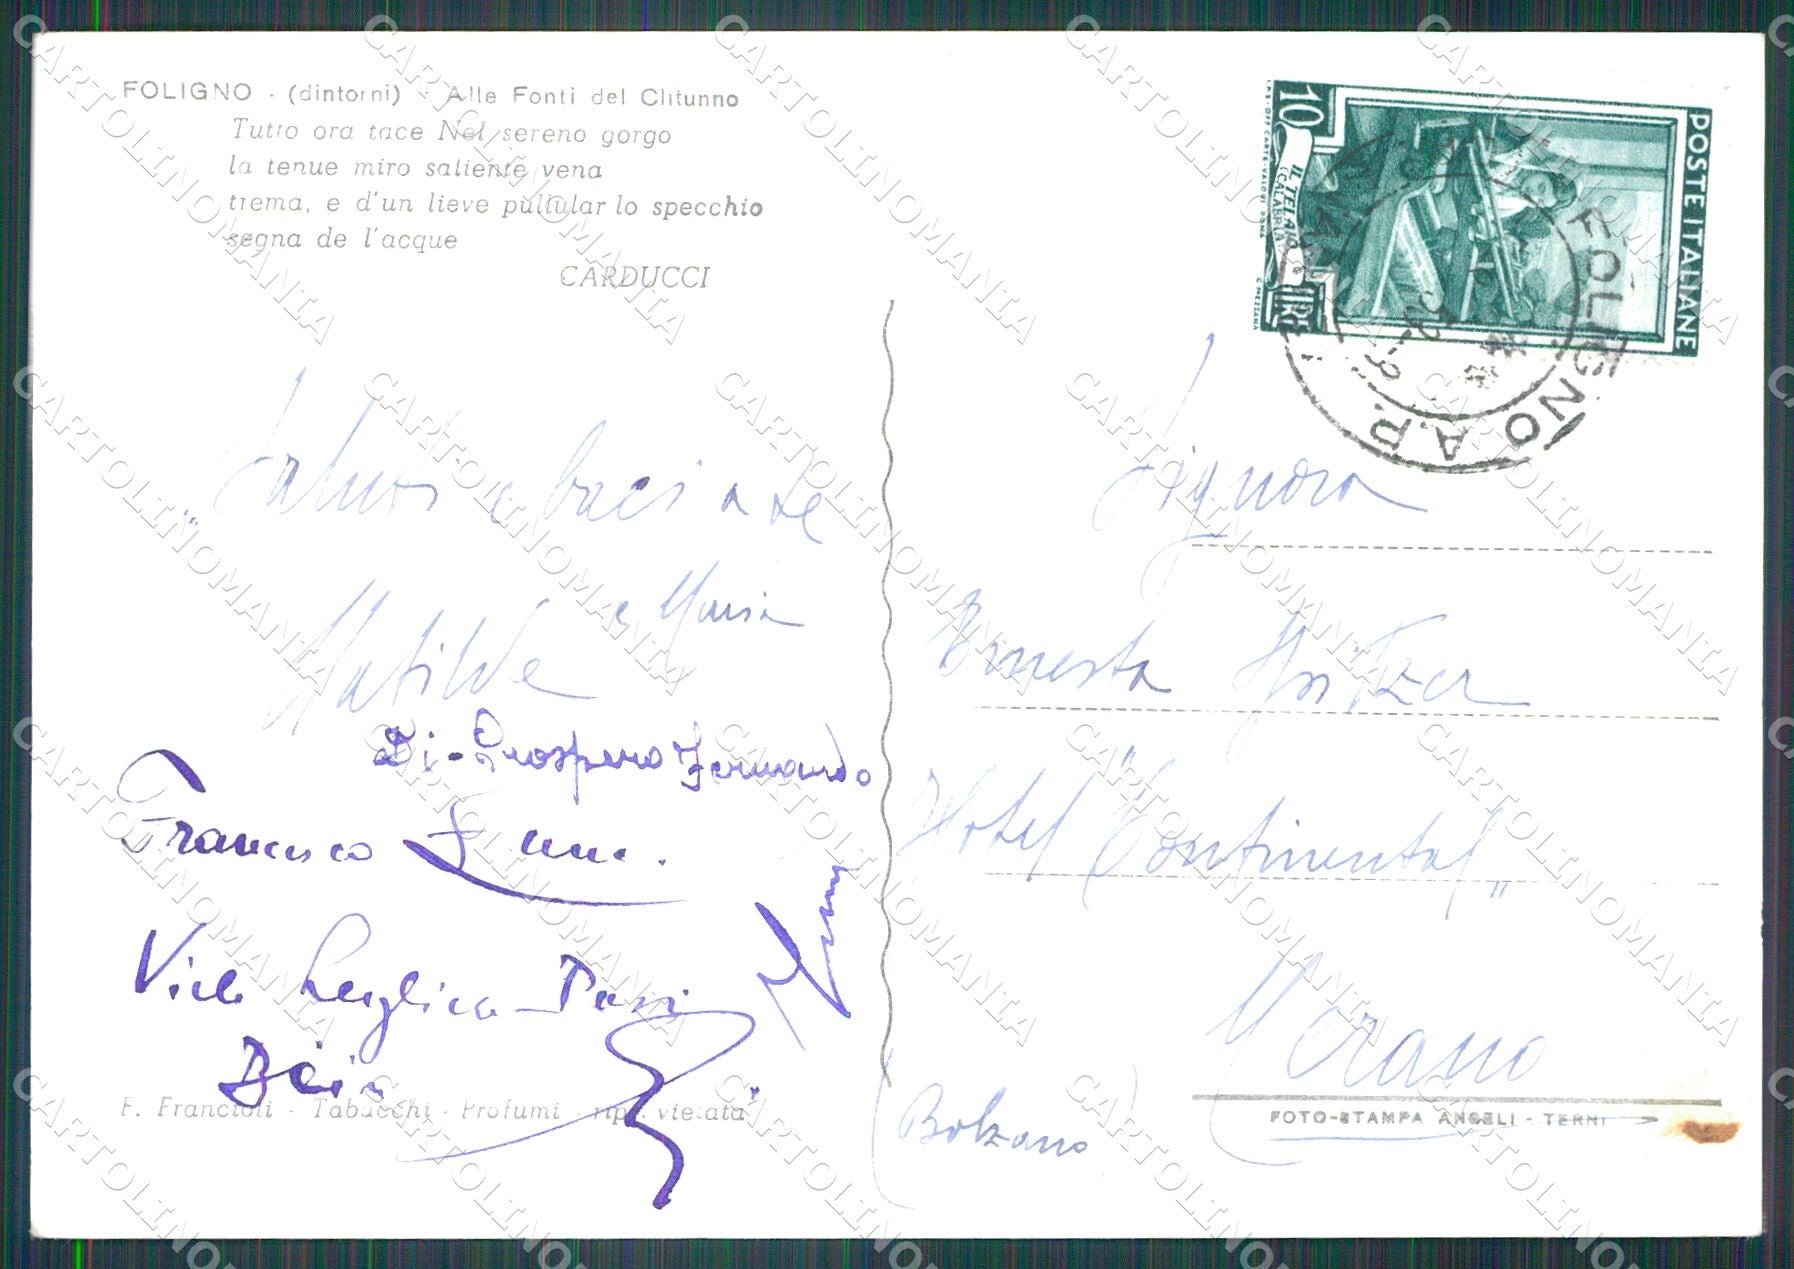 FOLIGNO - (dintorni) - Alle Fonti del Clitunno
Tutto ora tace Nel sereno gorgo
la tenue miro saliente vena
trema, e d'un lieve pullular lo specchio
segna de l'acque
CARDUCCI
Saluti e baci a te
Matilde e Maria
Di-Prospero Fernando
Francesco
F. Francioli - Tabacchi - Profumi - rip. vietata
10
LIRE
IL TELAIO
(CALABRIA)
POSTE ITALIANE
I.P.S.-OFF. CARTE VALORI-ROMA
C. MEZZANA
FOLIGNO A.P.
Signora
Ernesta Spitzer
Hotel "Continental"
Merano
(Bolzano)
FOTO-STAMPA ANGELI - TERNI
CARTOLINOMANIA